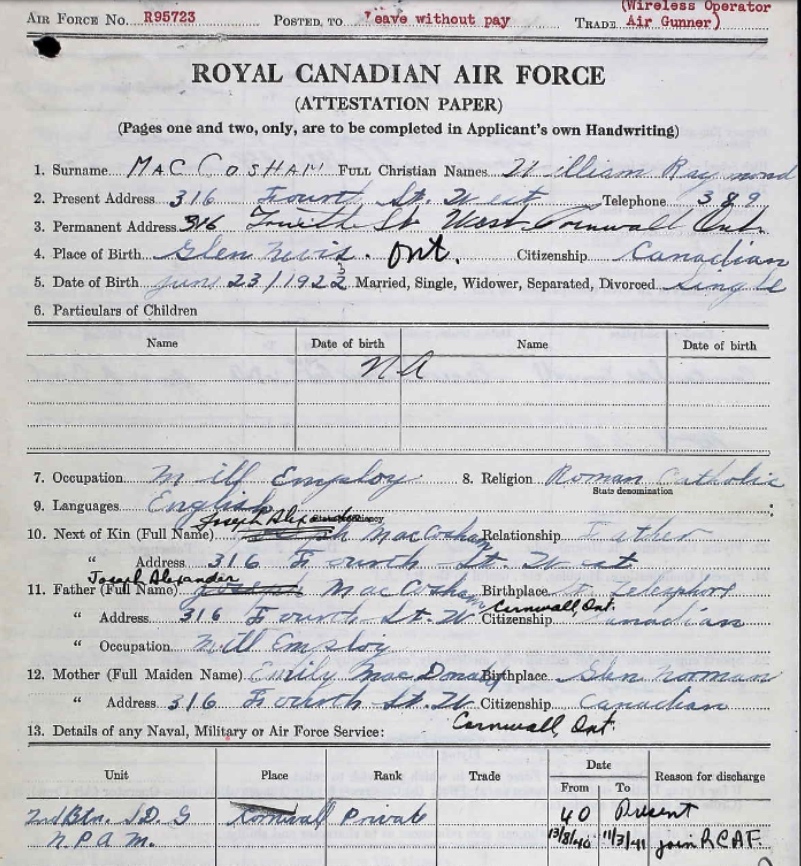 AIR FORCE NO. R95723 POSTED TO Leave without pay TRADE (Wireless Operator
Air Gunner)
ROYAL CANADIAN AIR FORCE
(ATTESTATION PAPER)
(Pages one and two, only, are to be completed in Applicant's own Handwriting)
1. Surname MAC COSHAM FULL Christian Names William Raymond
2. Present Address 316 Fourth St. West Telephone 389
3. Permanent Address 316 Fourth St West Cornwall Ont.
4. Place of Birth Glen Nevis. Ont. Citizenship Canadian
5. Date of Birth June 23/1922 Married, Single, Widower, Separated, Divorced single
6. Particulars of Children
Name Date of birth Name Date of birth
NA
7. Occupation Mill Employ 8. Religion Roman Catholic
State denomination
9. Languages English
Joseph Alexander
10. Next of Kin (Full Name) MacCosham Relationship Father
" Address 316 Fourth St. West
Joseph Alexander
11. Father (Full Name) MacCosham Birthplace St. Telesphore
Cornwall, Ont.
" Address 316 Fourth St. W Citizenship Canadian
" Occupation Mill Employ
12. Mother (Full Maiden Name) Emily MacDonald Birthplace Glen Norman
" Address 316 Fourth St. W Citizenship Canadian
Cornwall, Ont.
13. Details of any Naval, Military or Air Force Service:
Unit Place Rank Trade Date Reason for discharge
From To
2nd Btn. S.D.G Cornwall Private 40 Present
N.P.A.M. 13/8/40 11/3/41 join RCAF.